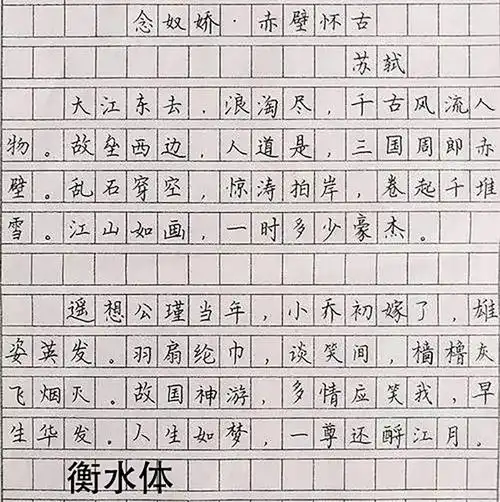 念奴娇·赤壁怀古
苏轼
大江东去，浪淘尽，千古风流人
物。故垒西边，人道是，三国周郎赤
壁。乱石穿空，惊涛拍岸，卷起千堆
雪。江山如画，一时多少豪杰。
遥想公瑾当年，小乔初嫁了，雄
姿英发。羽扇纶巾，谈笑间，樯橹灰
飞烟灭。故国神游，多情应笑我，早
生华发。人生如梦，一尊还酹江月。
衡水体